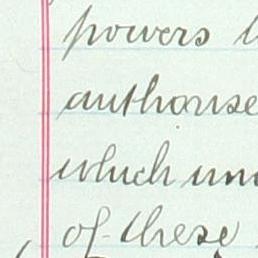 powers
authorise
which
of these